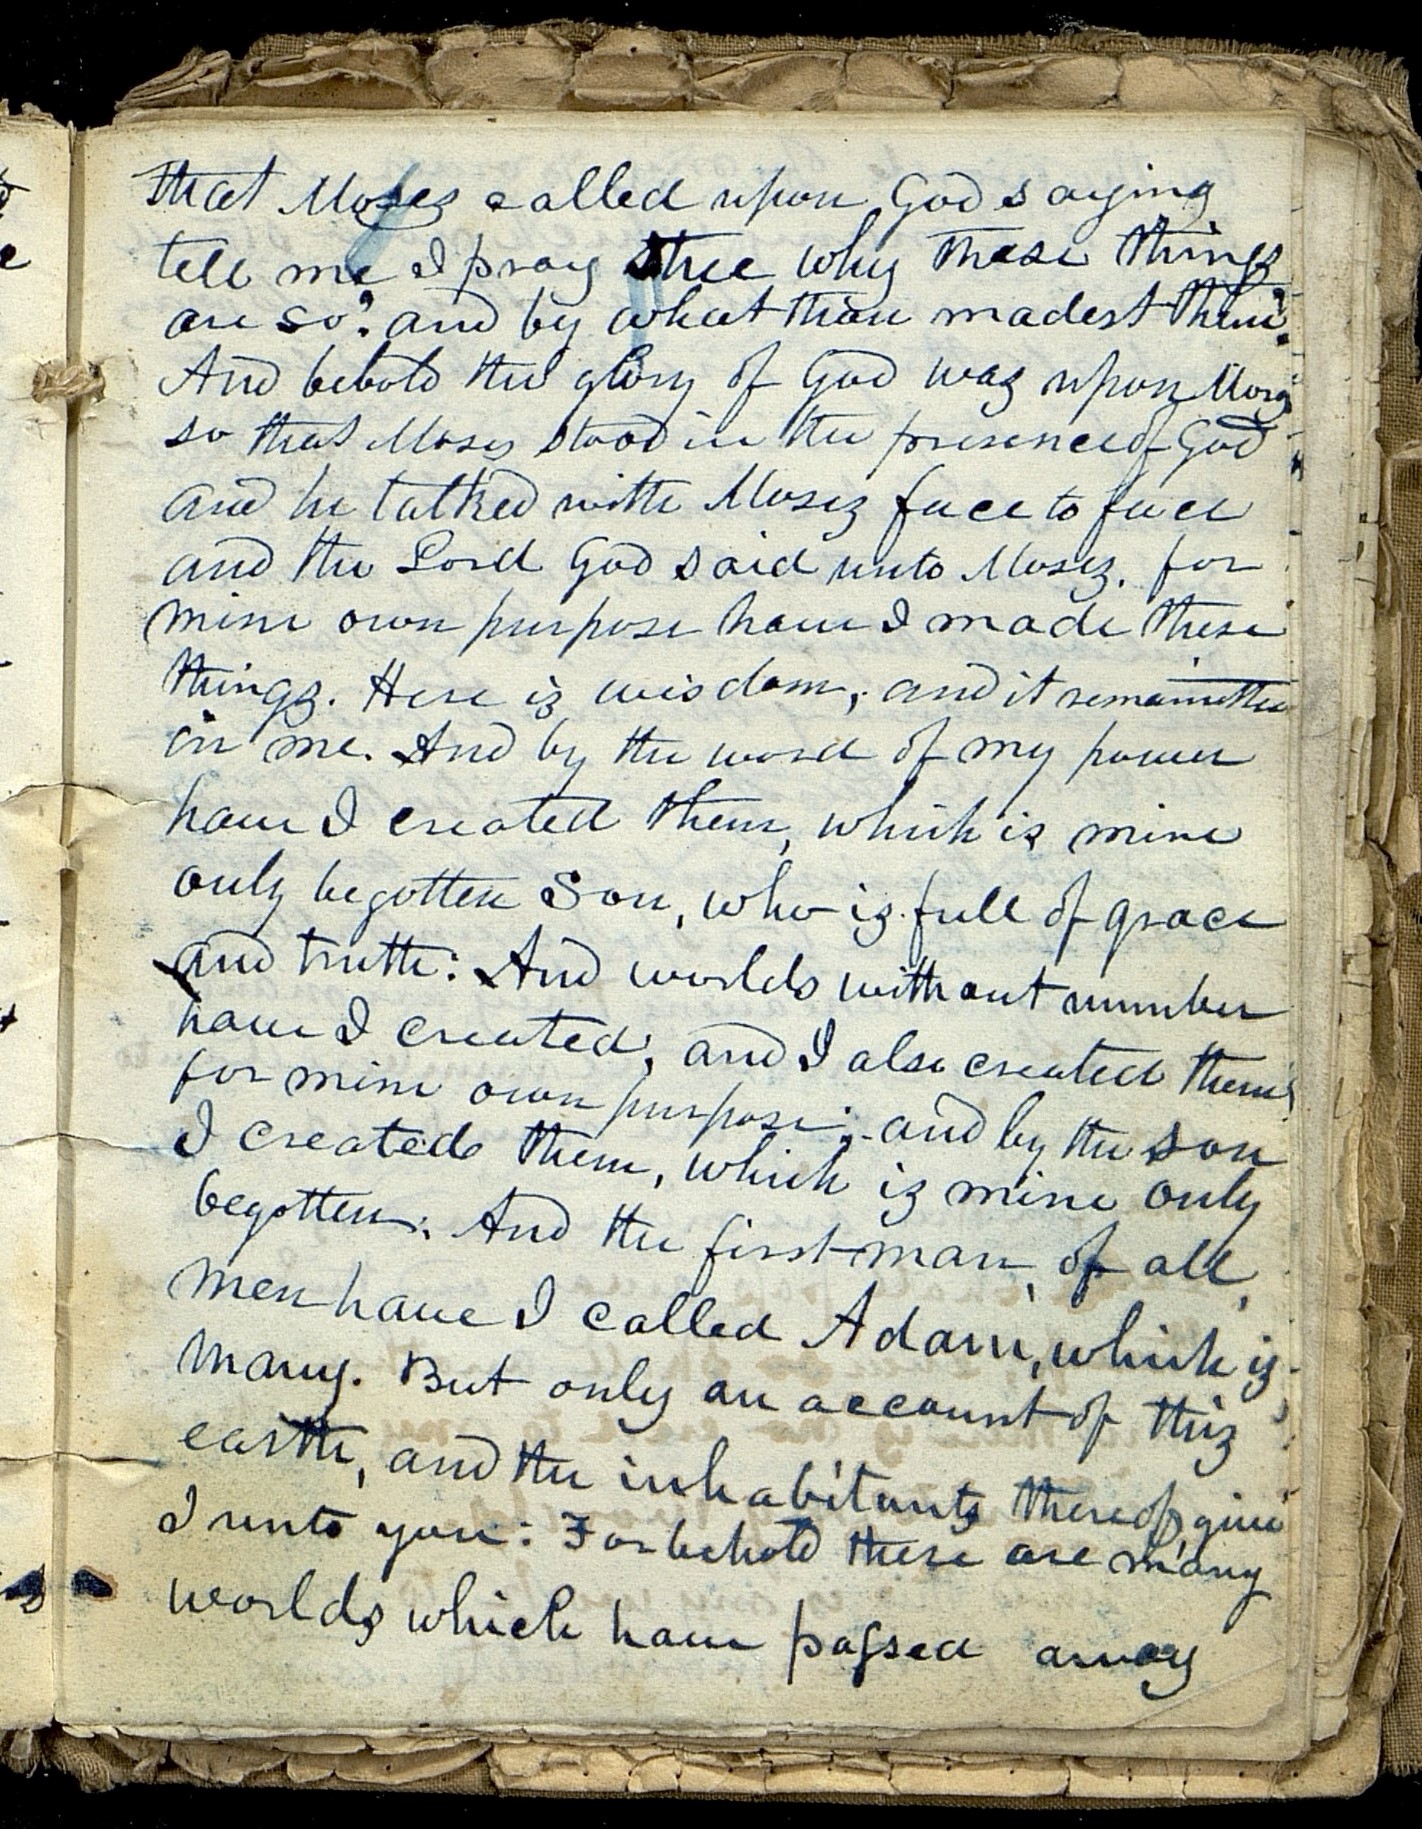 that Moses called upon God saying
tell me I pray thee why these things
are so? and by what thou madest them?
And behold the glory of God was upon Moses
so that Moses stood in the presence of God
and he talked with Moses face to face
and the Lord God said unto Moses. for
mine own purpose have I made these
things. Here is wisdom, and it remaineth
in me. And by the word of my power
have I created them, which is mine
only begotten Son, who is full of grace
and truth: And worlds without number
have I created, and I also created them
for mine own purpose; and by the son
I created them, which is mine only
begotten. And the first man, of all,
men have I called Adam, which is
many. But only an account of this
earth, and the inhabitants thereof, give
I unto you: For behold there are many
worlds which have passed away